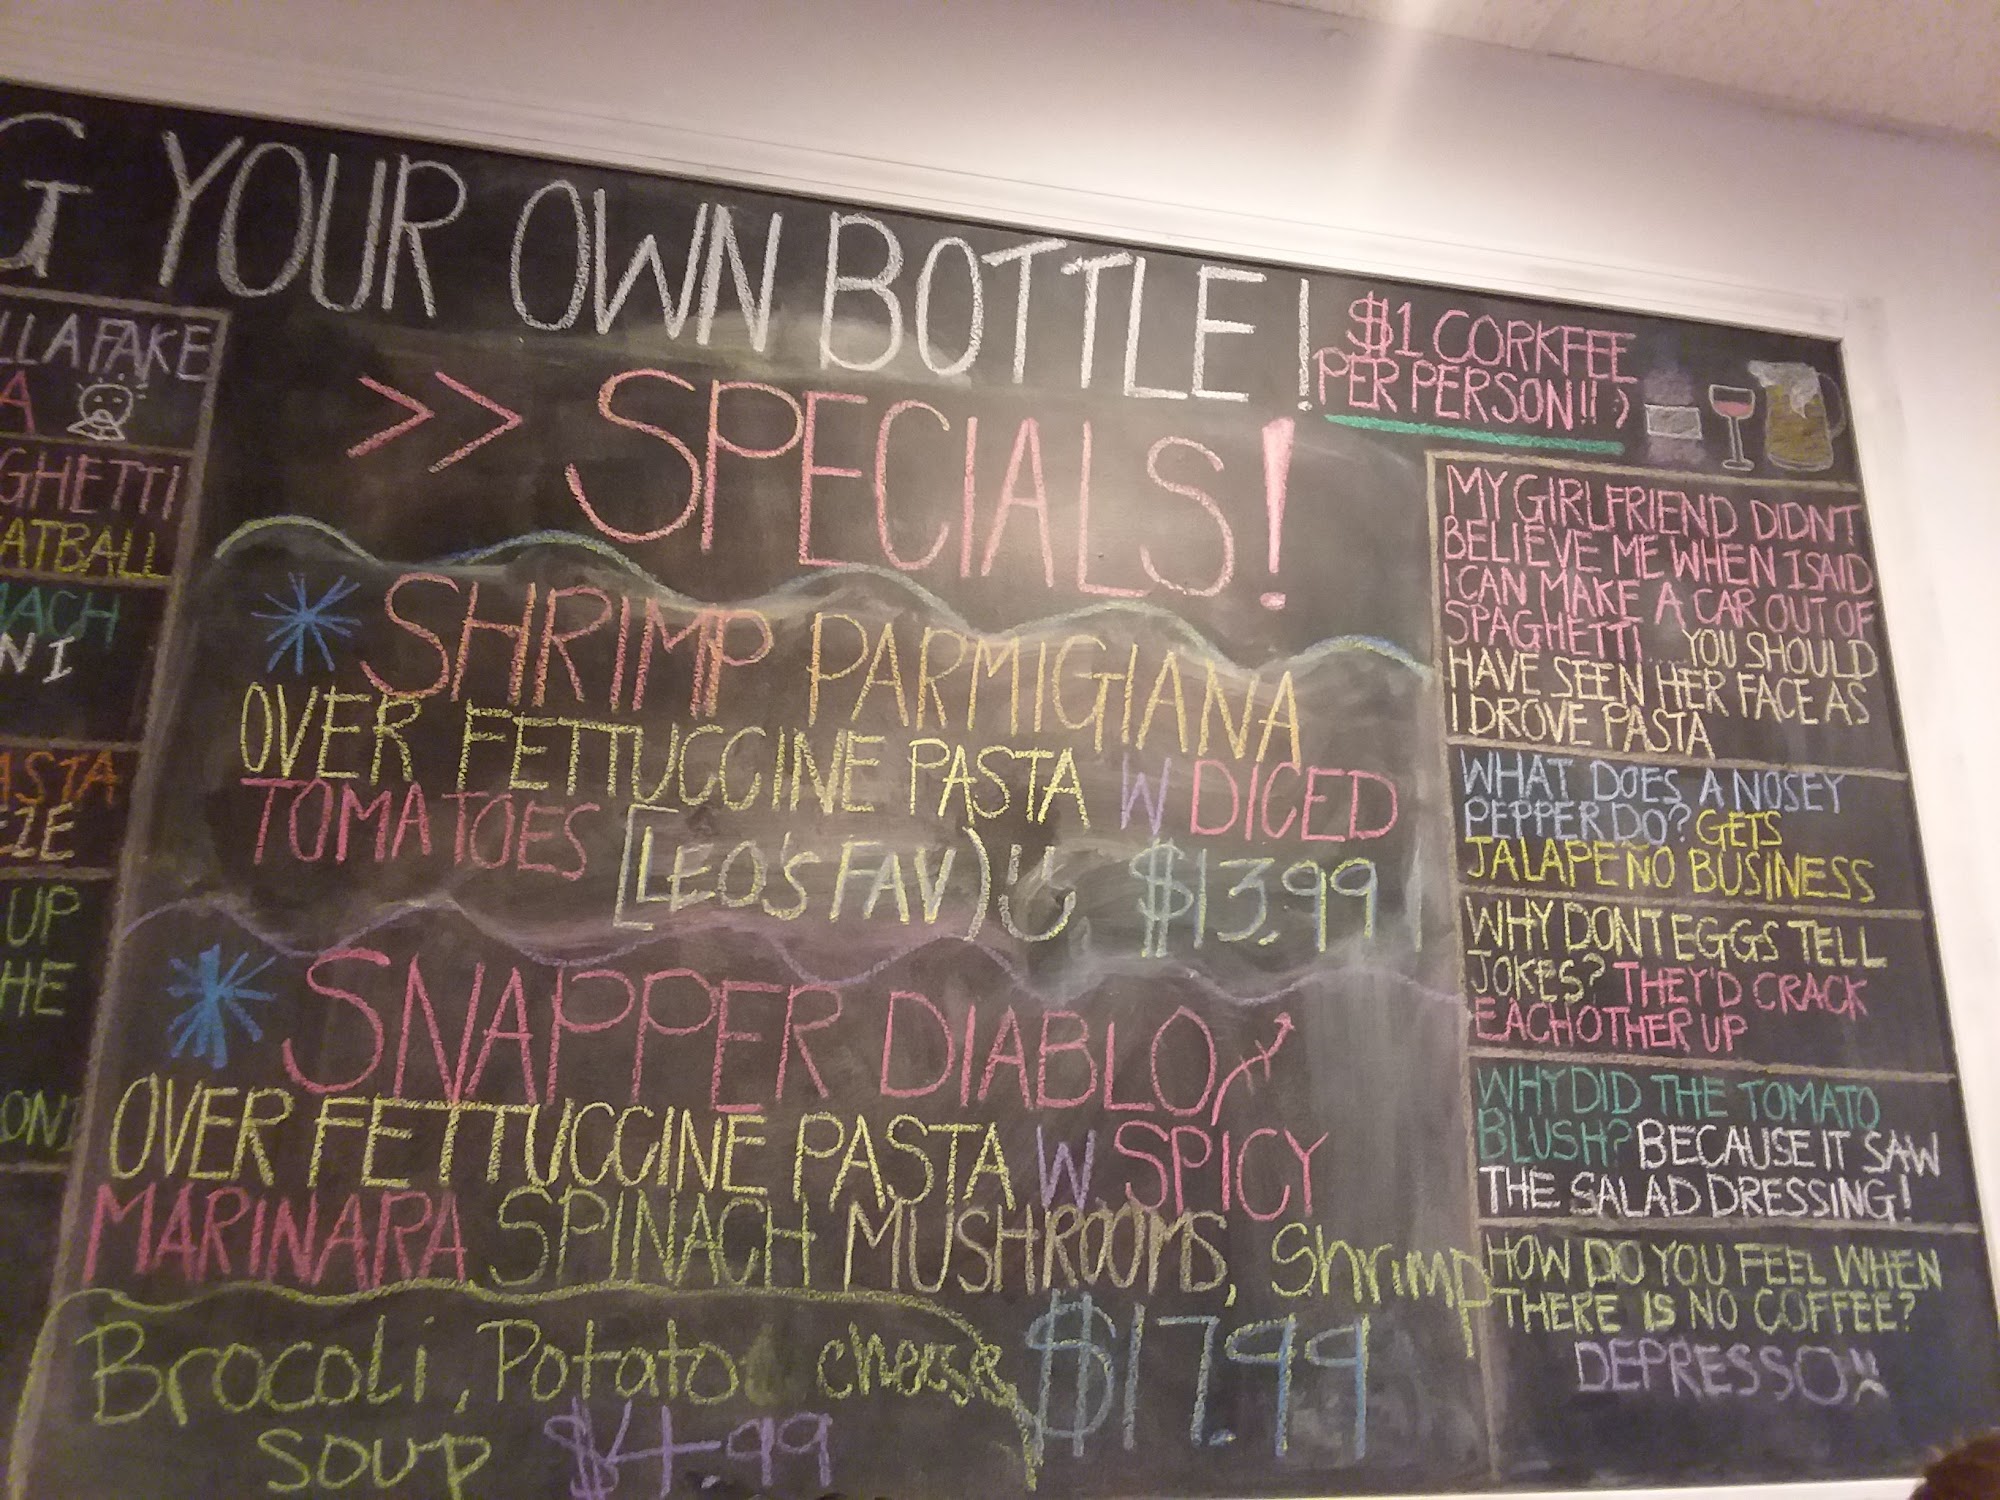 G YOUR OWN BOTTLE!
$1 CORKFEE
PER PERSON!! :)
LLA FAKE
A
GHETTI
ATBALL
ACH
NI
ASTA
ZIE
UP
HE
ONI
>> SPECIALS!
* SHRIMP PARMIGIANA
OVER FETTUCCINE PASTA W DICED
TOMATOES [LEO'S FAV) $13.99
* SNAPPER DIABLO
OVER FETTUCCINE PASTA W SPICY
MARINARA SPINACH MUSHROOMS, Shrimp
$17.99
Brocoli, Potato cheese
soup $4.99
MY GIRLFRIEND DIDN'T
BELIEVE ME WHEN I SAID
I CAN MAKE A CAR OUT OF
SPAGHETTI... YOU SHOULD
HAVE SEEN HER FACE AS
I DROVE PASTA
WHAT DOES A NOSEY
PEPPER DO? GETS
JALAPEÑO BUSINESS
WHY DONT EGGS TELL
JOKES? THEY'D CRACK
EACHOTHER UP
WHY DID THE TOMATO
BLUSH? BECAUSE IT SAW
THE SALAD DRESSING!
HOW DO YOU FEEL WHEN
THERE IS NO COFFEE?
DEPRESSO